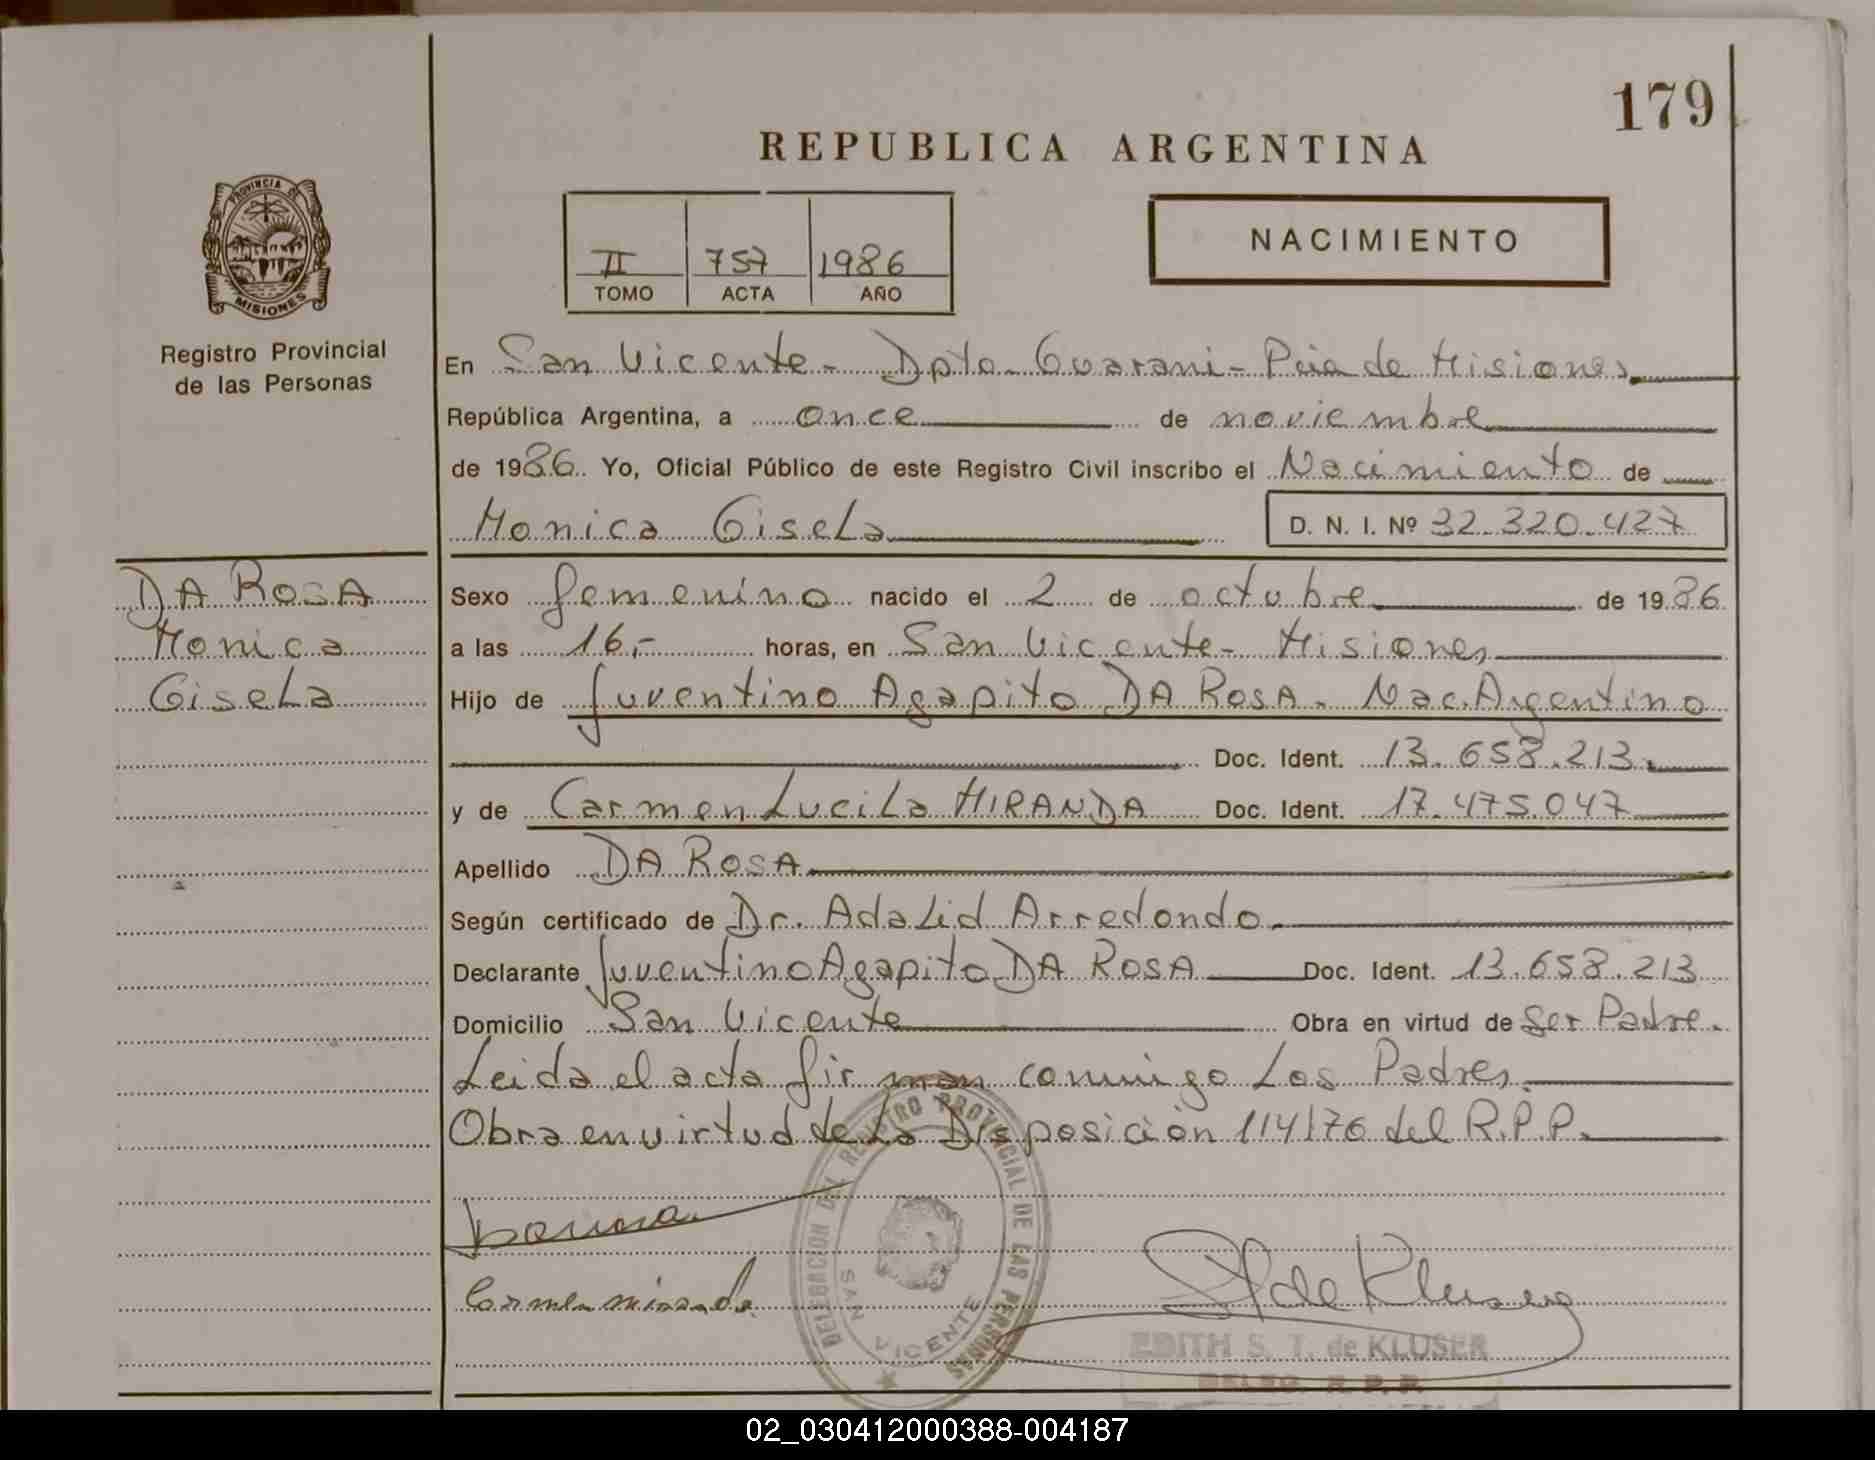 179
REPUBLICA ARGENTINA
PROVINCIA DE
MISIONES
Registro Provincial
de las Personas
II 757 1986
TOMO ACTA AÑO
NACIMIENTO
En San Vicente - Dpto. Guarani - Pcia de Misiones
República Argentina, a once de noviembre
de 1986. Yo, Oficial Público de este Registro Civil inscribo el Nacimiento de
Monica Gisela D. N. I. Nº 32.320.427
DA ROSA
Monica
Gisela
Sexo femenino nacido el 2 de octubre de 1986
a las 16,- horas, en San Vicente - Misiones
Hijo de Juventino Agapito DA ROSA. Nac. Argentino
Doc. Ident. 13.658.213.
y de Carmen Lucila MIRANDA Doc. Ident. 17.475.047
Apellido DA ROSA
Según certificado de Dr. Adalid Arredondo.
Declarante Juventino Agapito DA ROSA Doc. Ident. 13.658.213
Domicilio San Vicente Obra en virtud de Ser Padre.
Leida el acta firman conmigo Los Padres.
Obra en virtud de La Disposición 114/76 del R.P.P.
DELEGACION DEL REGISTRO PROVINCIAL DE LAS PERSONAS
SAN VICENTE
Carmen Miranda
de Kluser
EDITH S. T. de KLUSER
DELEG. R. P. P.
02_030412000388-004187